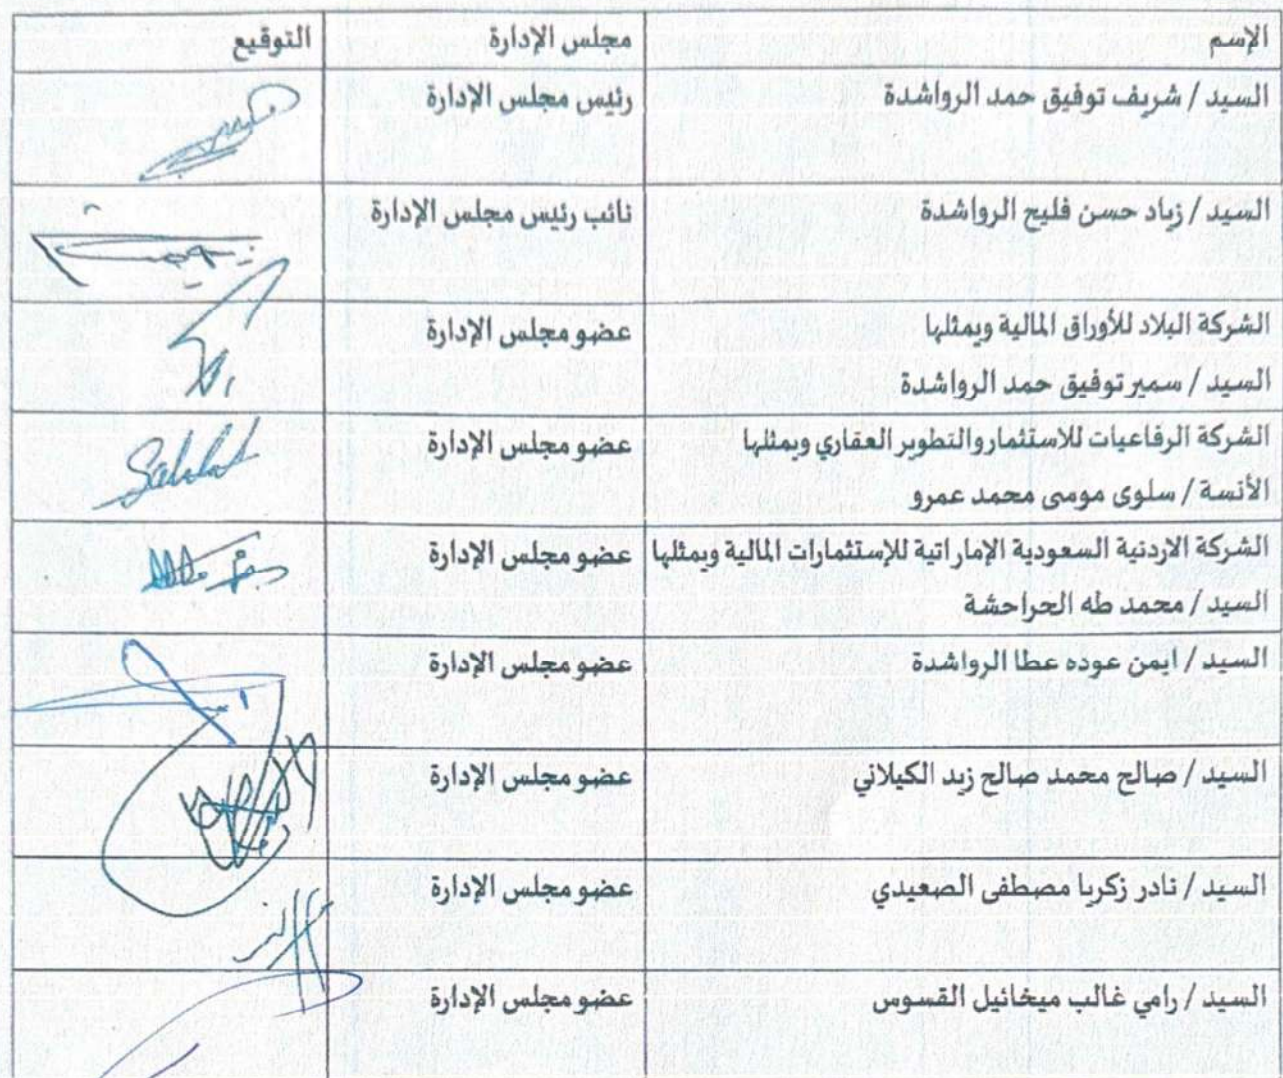 الإسم مجلس الإدارة التوقيع
السيد / شريف توفيق حمد الرواشدة رئيس مجلس الإدارة
السيد / زياد حسن فليح الرواشدة نائب رئيس مجلس الإدارة
الشركة البلاد للأوراق المالية ويمثلها عضو مجلس الإدارة
السيد / سمير توفيق حمد الرواشدة
الشركة الرفاعيات للاستثمار والتطوير العقاري ويمثلها عضو مجلس الإدارة
الأنسة / سلوى موسى محمد عمرو
الشركة الاردنية السعودية الإماراتية للإستثمارات المالية ويمثلها عضو مجلس الإدارة
السيد / محمد طه الحراحشة
السيد / ايمن عوده عطا الرواشدة عضو مجلس الإدارة
السيد / صالح محمد صالح زيد الكيلاني عضو مجلس الإدارة
السيد / نادر زكريا مصطفى الصعيدي عضو مجلس الإدارة
السيد / رامي غالب ميخائيل القسوس عضو مجلس الإدارة